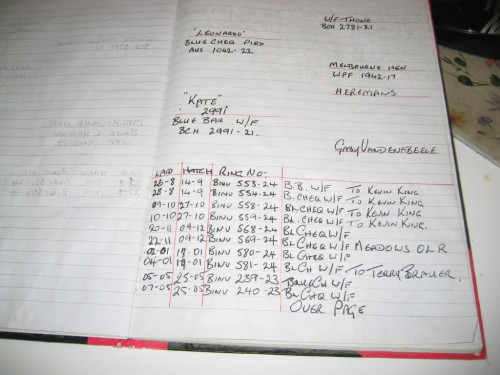 W/F THONE
BCH 2781-21
"LEONARDO"
BLUE CHEQ PIED
AUS 1042-22
MELBOURNE HEN
WPF 1942-17
HEREMANS
"KATE"
2991
BLUE BAR W/F
BCH 2991-21.
GABY VANDENABEELE
LAID HATCH RING NO:
26-8 14-9 BINV 553-24 B.B. W/F TO KEVIN KING
28-8 14-9 BINV 554-24 B.CHEQ W/F TO KEVIN KING
09-10 27-10 BINV 558-24 BL.CHEQ W/F TO KEVIN KING
10-10 27-10 BINV 559-24 BL.CHEQ W/F TO KEVIN KING.
20-11 09-12 BINV 568-24 BL CHEQ W/F
22-11 09-12 BINV 569-24 BL CHEQ W/F MEADOWS OLR
02-01 19-01 BINV 580-24 BL CHEQ W/F
04-01 19-01 BINV 581-24 BL CH W/F TO TERRY
05-05 25-05 BINV 239-23 W/F
07-05 25-05 BINV 240-23 BL CHQ W/F
OVER PAGE